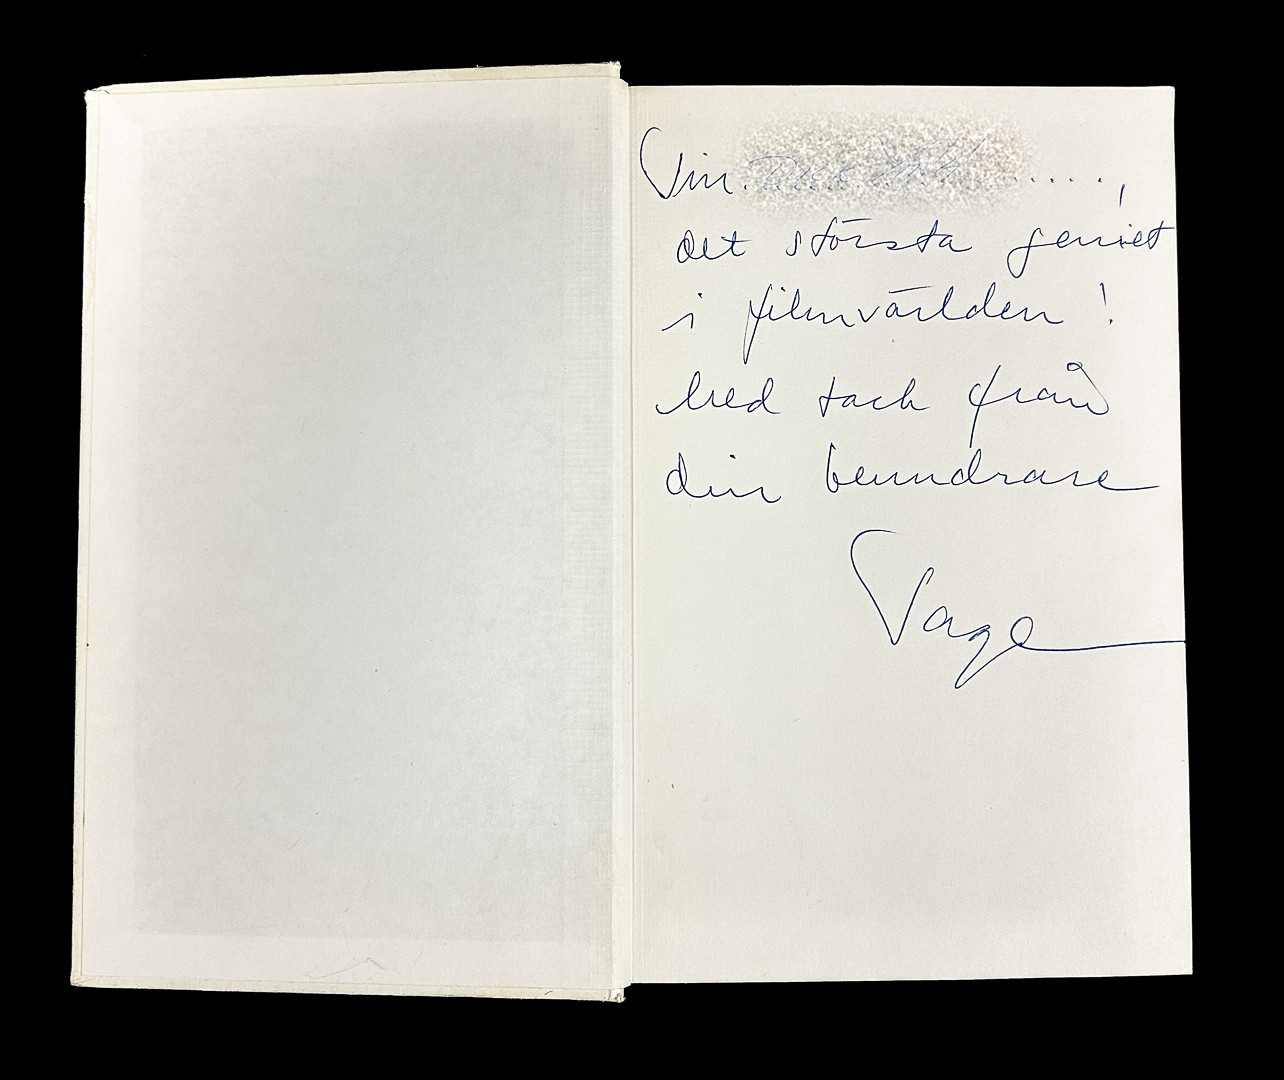 Till ........,
det största geniet
i filmvärlden!
Med tack från
din beundrare
Tage